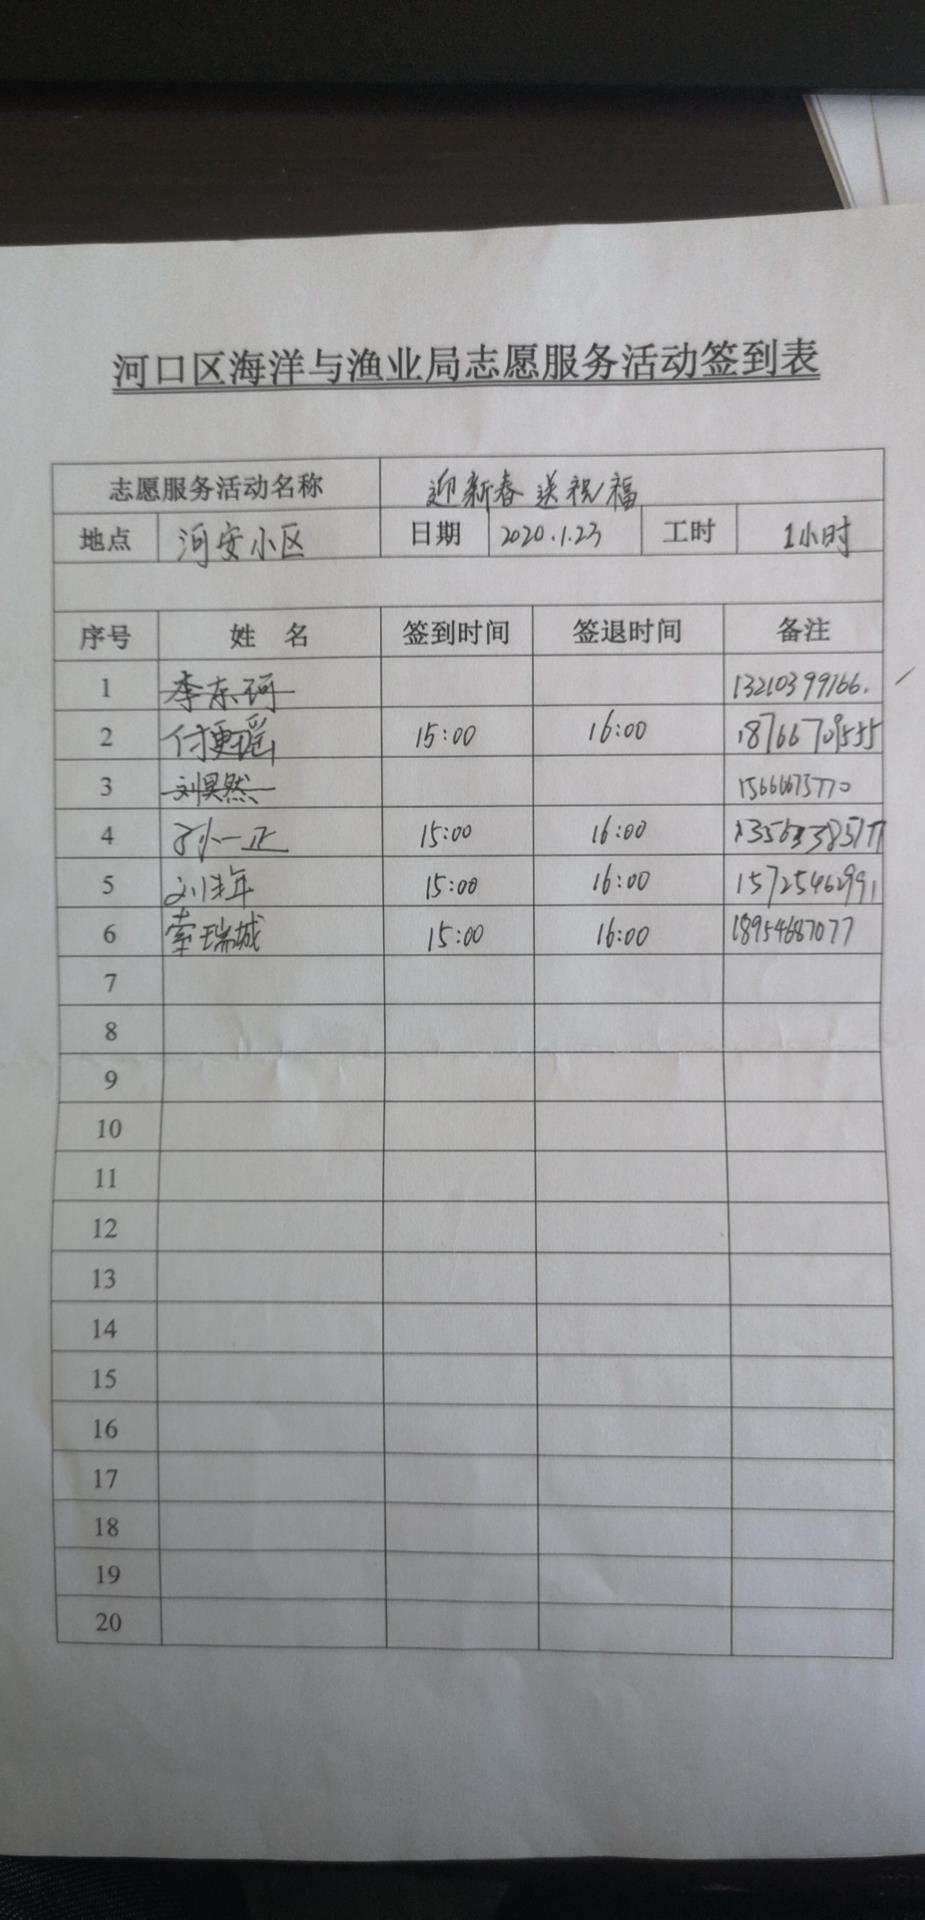 河口区海洋与渔业局志愿服务活动签到表
志愿服务活动名称 迎新春送祝福
地点 河安小区 日期 2020.1.23 工时 1小时
序号 姓名 签到时间 签退时间 备注
1 李东河 13210399166.
2 付更瑶 15:00 16:00 18766709555
3 刘昊然 15666675770
4 孙一正 15:00 16:00
5 刘年 15:00 16:00 15725462991
6 索瑞城 15:00 16:00 18954687077
7
8
9
10
11
12
13
14
15
16
17
18
19
20